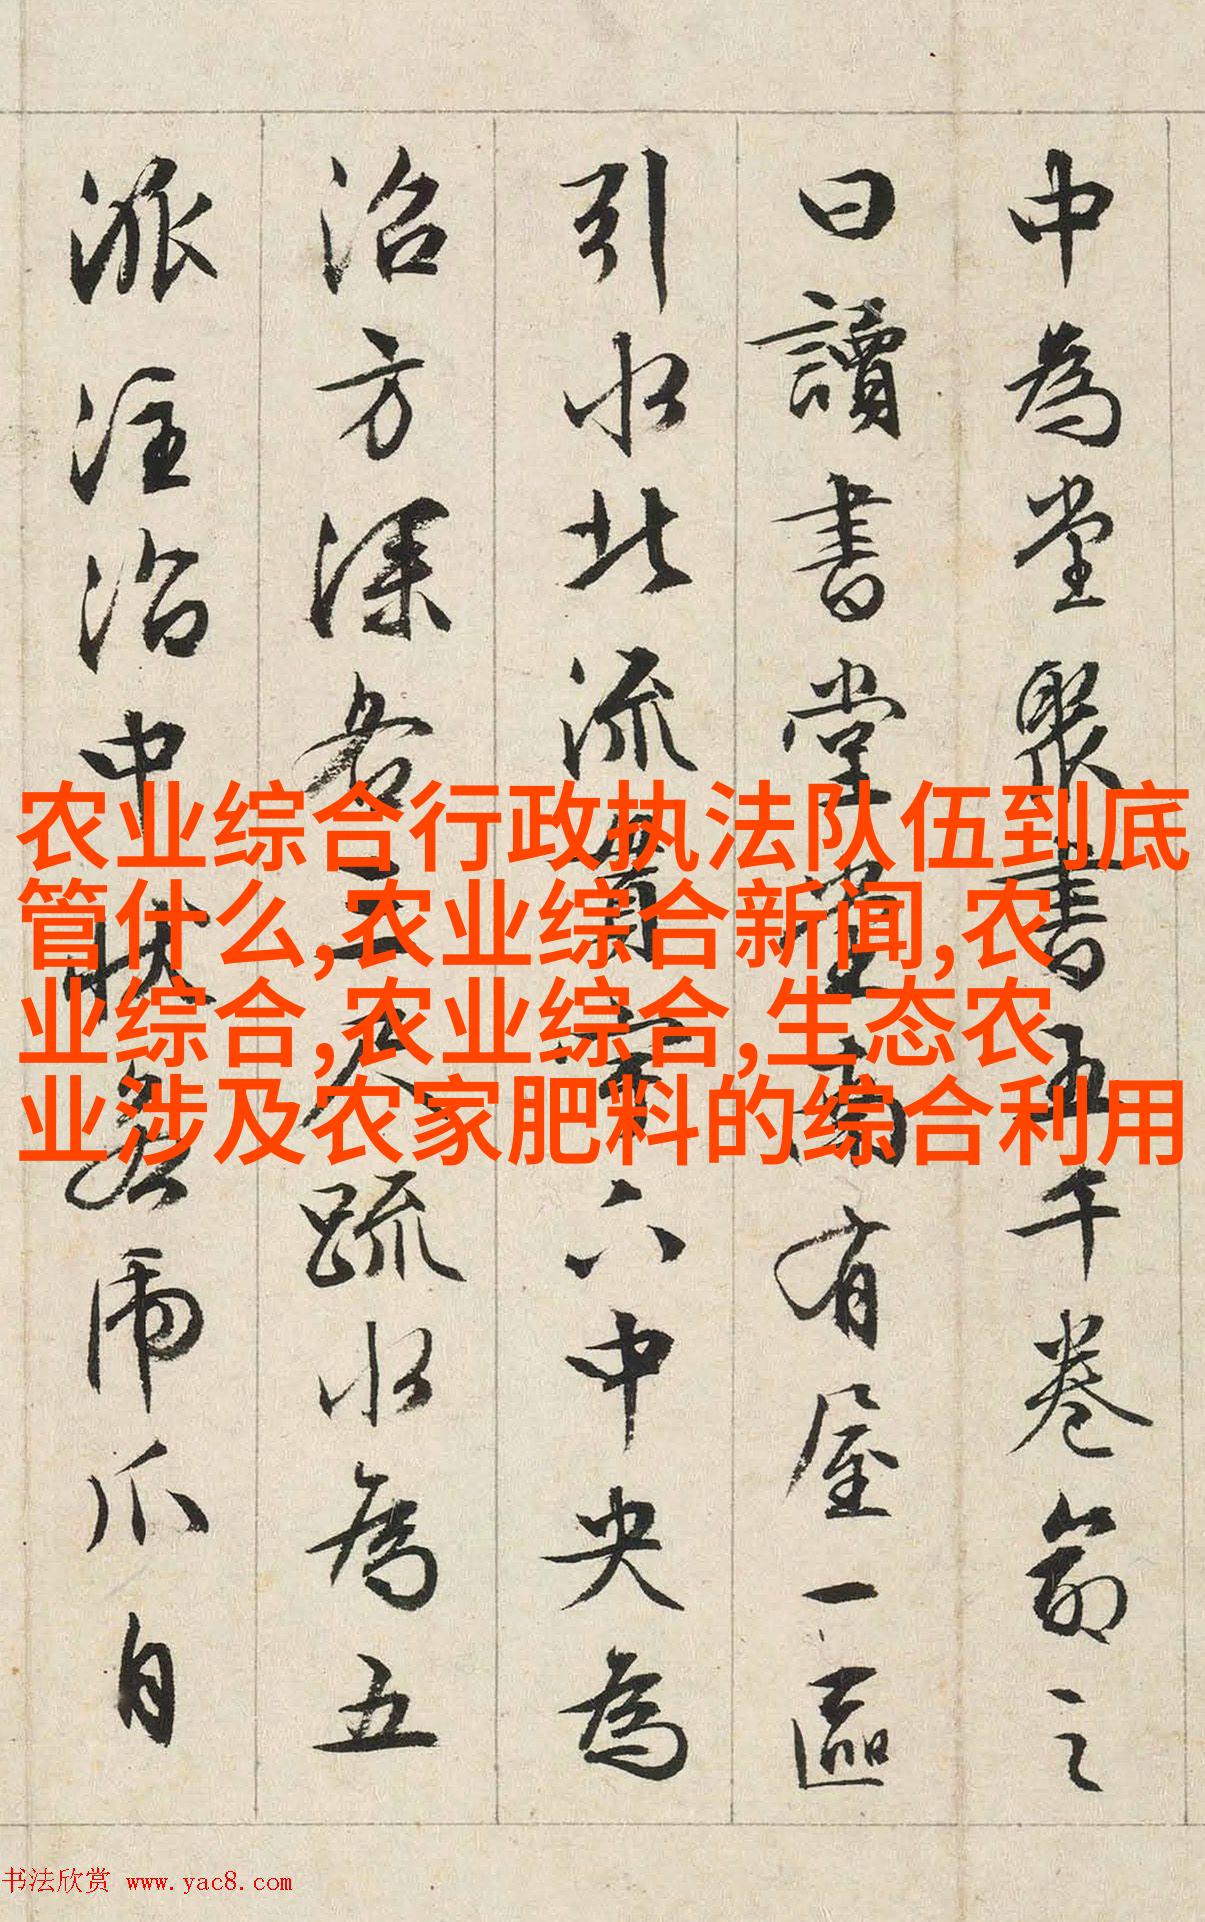 中為堂聚書五千卷命之
曰讀書堂堂南有屋一區
引水北流貫宇下中央為
沼方深各三尺疏水為五
派注沼中狀若虎爪自
农业综合行政执法队伍到底
管什么,农业综合新闻,农
业综合,农业综合,生态农
业涉及农家肥料的综合利用
书法欣赏 www.yac8.com